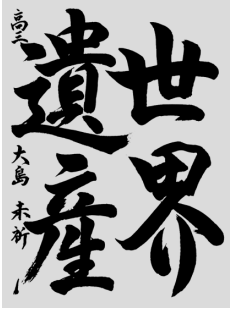 世界
遺産
高三 大島 未祈